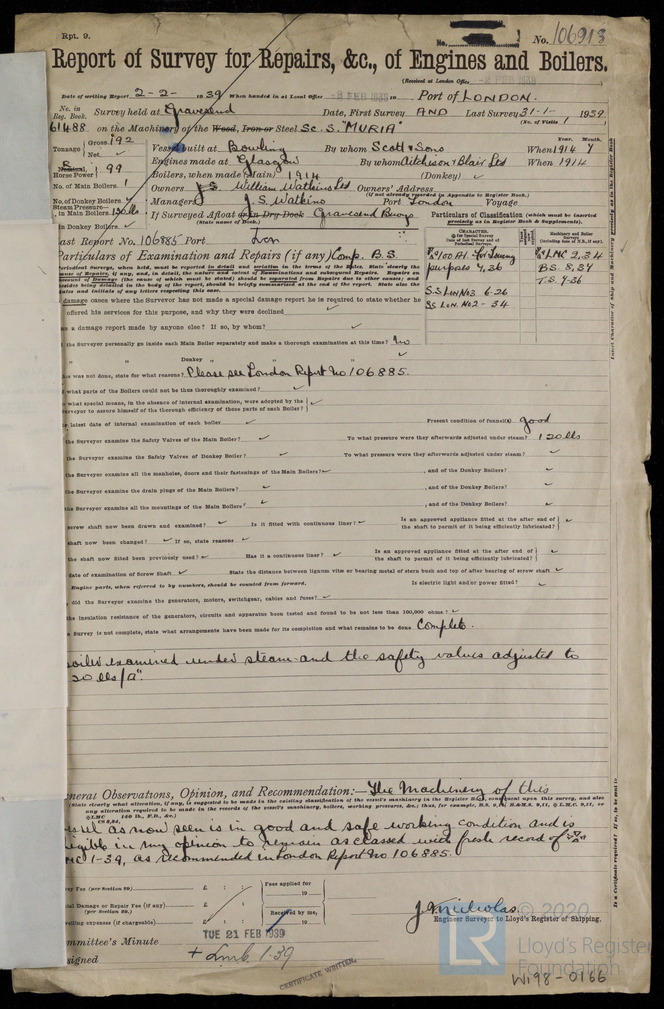 Rpt. 9.
No. 106913
Report of Survey for Repairs, &c., of Engines and Boilers.
(Received at London Office 2 FEB 1939
Date of writing Report 2-2-1939 When handed in at Local Office 2 FEB 1939 Port of LONDON.
No. in Reg. Book. Survey held at Gravesend Date, First Survey AND Last Survey 31-1-1939
(No. of Visits 1)
61488 on the Machinery of the Wood, Iron or Steel Sc. S. "MURIA"
Tonnage Gross 192 Vessel built at Bowling By whom Scott & Sons When 1914 Year. Month. 7
Net Engines made at Glasgow By whom Aitchison Blair Ltd When 1914
Nominal Horse Power 99 Boilers, when made (Main) 1914 (Donkey)
No. of Main Boilers 1 Owners J.S. William Watkins Ltd Owners' Address
(if not already recorded in Appendix to Register Book.)
No. of Donkey Boilers Managers J.S. Watkins Port London Voyage
Steam Pressure
in Main Boilers 120 lbs If Surveyed Afloat or in Dry Dock Gravesend Buoys
(State name of Dock.)
in Donkey Boilers
Particulars of Classification (which must be inserted precisely as in Register Book & Supplements).
Last Report No. 106885 Port Lon
Particulars of Examination and Repairs (if any) Comp. B.S.
100A1 for Towing purposes 4,36
LMC 2,34
BS. 8,37
T.S. 4-36
S.S Lon No3 6-26
SS Lon. No2-34
damage cases where the Surveyor has not made a special damage report he is required to state whether he
offered his services for this purpose, and why they were declined
a damage report made by anyone else? If so, by whom?
the Surveyor personally go inside each Main Boiler separately and make a thorough examination at this time? No
" " Donkey " "
was not done, state for what reasons? Please see London Report No 106885.
what parts of the Boilers could not be thus thoroughly examined?
what special means, in the absence of internal examination, were adopted by the
Surveyor to assure himself of the thorough efficiency of those parts of each Boiler?
latest date of internal examination of each boiler Present condition of funnel(s) good
the Surveyor examine the Safety Valves of the Main Boiler? To what pressure were they afterwards adjusted under steam? 120 lbs
the Surveyor examine the Safety Valves of Donkey Boiler? To what pressure were they afterwards adjusted under steam?
the Surveyor examine all the manholes, doors and their fastenings of the Main Boilers? , and of the Donkey Boilers?
the Surveyor examine the drain plugs of the Main Boilers? , and of the Donkey Boilers?
the Surveyor examine all the mountings of the Main Boilers? , and of the Donkey Boilers?
screw shaft now been drawn and examined? Is it fitted with continuous liner? Is an approved appliance fitted at the after end of the shaft to permit of it being efficiently lubricated?
shaft now been changed? If so, state reasons
the shaft now fitted been previously used? Has it a continuous liner? Is an approved appliance fitted at the after end of the shaft to permit of it being efficiently lubricated?
date of examination of Screw Shaft State the distance between lignum vitæ or bearing metal of stern bush and top of after bearing of screw shaft
Engine parts, when referred to by numbers, should be counted from forward. Is electric light and/or power fitted?
did the Surveyor examine the generators, motors, switchgear, cables and fuses?
the insulation resistance of the generators, circuits and apparatus been tested and found to be not less than 100,000 ohms?
Survey is not complete, state what arrangements have been made for its completion and what remains to be done Complete.
Boiler examined under steam and the safety valves adjusted to
120 lbs/□".
General Observations, Opinion, and Recommendation:— The Machinery of this
(State clearly what alteration, if any, is suggested to be made in the existing classification of the vessel's machinery in the Register Book, consequent upon this survey, and also
any alteration required to be made in the records of the vessel's machinery, boilers, working pressures, &c.; thus, for example, B.S. 9,11, B.&M.S. 9,11, LMC 9,11, or
LMC 140 lb., F.D., &c.)
CS 9,34,
vessel as now seen is in good and safe working condition and is
eligible in my opinion to remain as classed with fresh record of
LMC 1-39, as recommended in London Report No 106885.
Survey Fee (per Section 29.) £ : : Fees applied for
19
Special Damage or Repair Fee (if any) £ : :
(per Section 29.)
Received by me,
Travelling expenses (if chargeable) £ : : 19
J. Nicholas
Engineer Surveyor to Lloyd's Register of Shipping.
Committee's Minute TUE 21 FEB 1939
Assigned + Lmb 1.39
CERTIFICATE WRITTEN.
© 2020
LR
Lloyd's Register
Foundation
W198-0166